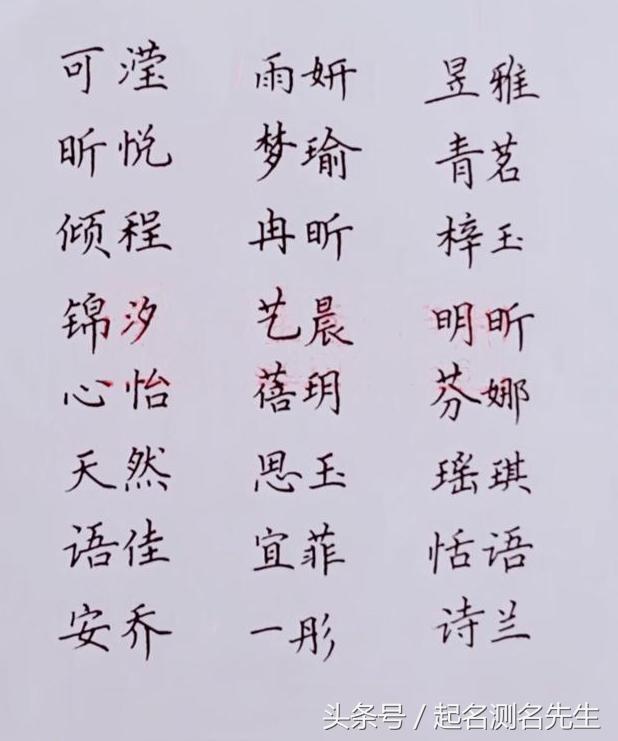 可滢 雨妍 昱雅
昕悦 梦瑜 青茗
倾程 冉昕 梓玉
锦汐 艺晨 明昕
心怡 蓓玥 芬娜
天然 思玉 瑶琪
语佳 宜菲 恬语
安乔 一彤 诗兰
头条号 / 起名测名先生